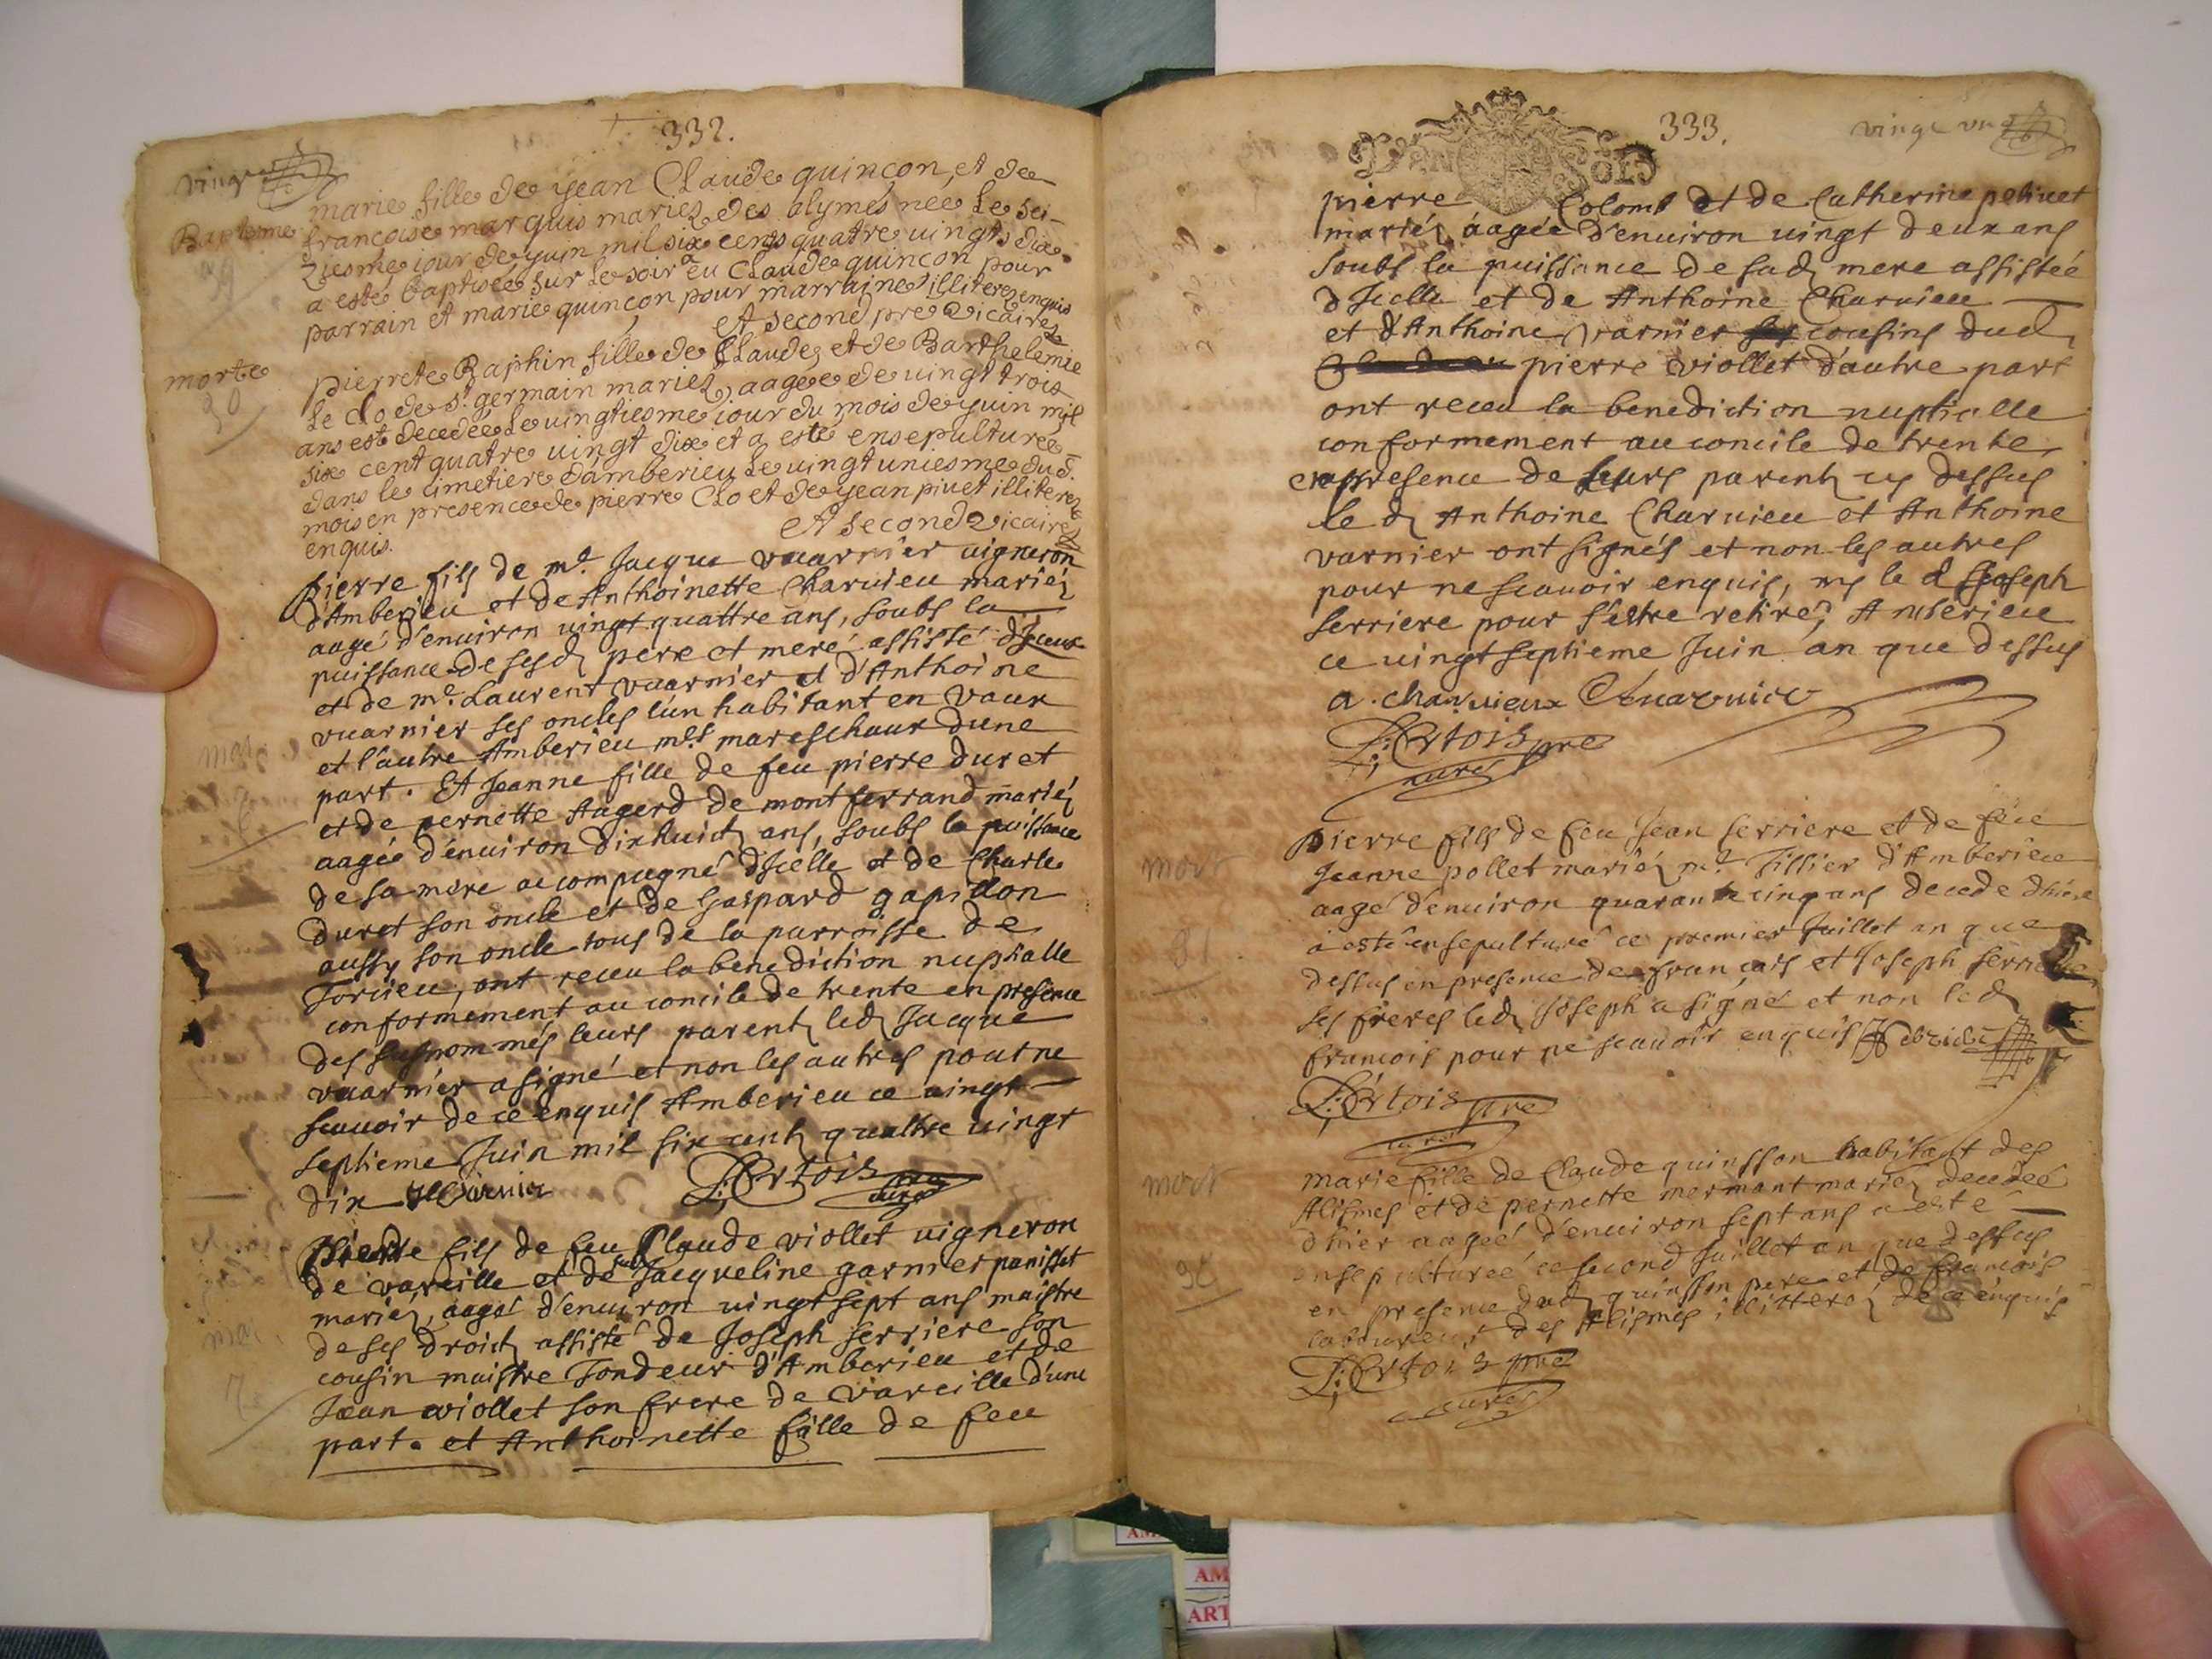 332.
vingt
Baptesme
marie fille de yean Claude quinçon, et de
françoise marquis mariez des alymes nee le sei-
ziesme jour de yuin mil six cents quatre vingts dix
a este baptisee sur le soir a eu Claude quincon pour
parrain et marie quinçon pour marraine illiterez enquis
et second pre vicaire
morte
30
pierrete Baphin fille de Claude, et de Barthelemie
le Clo de st germain mariez, aagee de vingt trois
ans est decedee le vingtiesme iour du mois de yuin mil
six cent quatre vingt dix et a esté ensepulturee
dans le cimetiere damberieu le vingt uniesme dud.
mois en presence de pierre Clo et de yean pivet illiterez
enquis.
et second vicaire
pierre fils de me. Jacque vuarnier vigneron
d'Amberieu et de Anthoinette Charvieu mariez
aagé d'environ vingt quattre ans, soubs la
puissance de sesd. pere et mere assisté d'Jceux
et de me. Laurent vuarnier et d'Anthoine
vuarnier ses oncles l'un habitant en vaux
et l'autre Amberieu mes mareschaux dune
part. Et Jeanne fille de feu pierre duret
et de pernette Augerd de montferrand mariez
aagée d'environ dixhuict ans, soubs la puissance
de sa mere accompagné d'Jcelle et de Charle
duret son oncle et de Gaspard gapillon
aussy son oncle tous de la parroisse de
Torcieu, ont receu la benediction nuptialle
conformement au concile de trente en presence
des susnommés leurs parents led. Jacque
vuarnier a signé et non les autres pour ne
scavoir de ce enquis Amberieu ce vingt
septieme Juin mil six cents quattre vingt
dix
P: Ertois pre
curé
Pierre fils de feu Claude viollet vigneron
de vareille et de Jacqueline garnier panisset
mariez, aagé d'environ vingt sept ans maistre
de ses droicts assisté de Joseph serriere son
cousin maistre Tondeur d'Amberieu et de
Jean viollet son frere de vareille d'une
part. et Anthoinette fille de feu
333.
vingt un
Sols
pierre Colomb et de Catherine pelivet
mariés, aagée d'environ vingt deux ans
soubs la puissance de sad. mere assistée
d'Jcelle et de Anthoine Charvieu
et d'Anthoine varnier cousins dud.
pierre viollet d'autre part
ont receu la benediction nuptialle
conformement au concile de trente
en presence de leurs parents cy dessus
le d. Anthoine Charvieu et Anthoine
varnier ont signés et non les autres
pour ne scavoir enquis, ny le d. Joseph
serriere pour s'estre retiré, Amberieu
ce vingt septieme Juin an que dessus
a. charvieux
P: Ertois pre
curé
mort
31
Pierre fils de feu Jean serriere et de feue
Jeanne pollet mariéz me. Tissier d'Amberieu
aagé d'environ quarante cinq ans decede d'hier
a esté ensepulturé ce premier Juillet an que
dessus en presence de francois et Joseph serriere
ses freres led. Joseph a signé et non led.
francois pour ne scavoir enquis
P: Ertois pre
curé
mort
32
marie fille de Claude quinsson habitant des
Alismes et de pernette mermant mariez decedeé
d'hier aageé d'environ sept ans a esté
ensepultureé ce second Juillet an que dessus
en presence dud. quinsson pere et de francois
laboureur des Alismes illitterez de ce enquis
P: Ertois pre
curé
AM
AM
ART